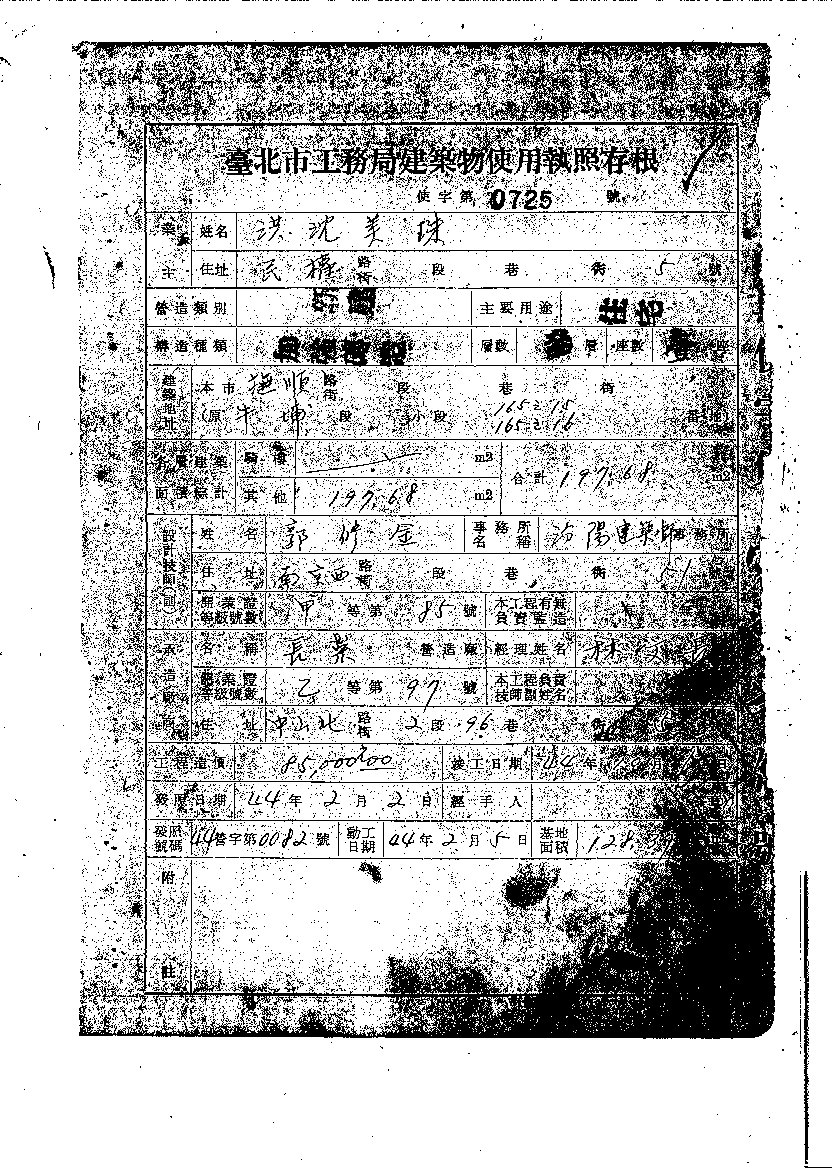 臺北市工務局建築物使用執照存根
使字第 0725 號
業主 姓名 洪沈美珠
住址 民權 路街 段 巷 街 5 號
營造類別 新建 主要用途 住宅
構造種類 加強磚造 層數 層 座數 座
建築地址 本市 撫順 路街 段 巷 街
(原 牛埔 段 小段 165-2-15 165-2-16 番地)
各層建築面積總計 騎樓 m2 合計 197.68 m2
其他 197.68 m2
設計技師(副) 姓名 郭修金 事務所名稱 汾陽建築師事務所
住址 南京西 路街 段 巷 街 151 號
開業證等級號數 甲 等第 85 號 本工程有無負責監造
承造廠商 名稱 長業 營造廠 經理姓名 林
開業證等級號數 乙 等第 97 號 本工程負責技師副姓名
住址 中山北 路街 2 段 96 巷 街
工程造價 85,000.00 竣工日期 44 年 月 日
發照日期 44 年 2 月 2 日 經手人
發照號碼 44營字第0082號 動工日期 44 年 2 月 5 日 基地面積 128
附註